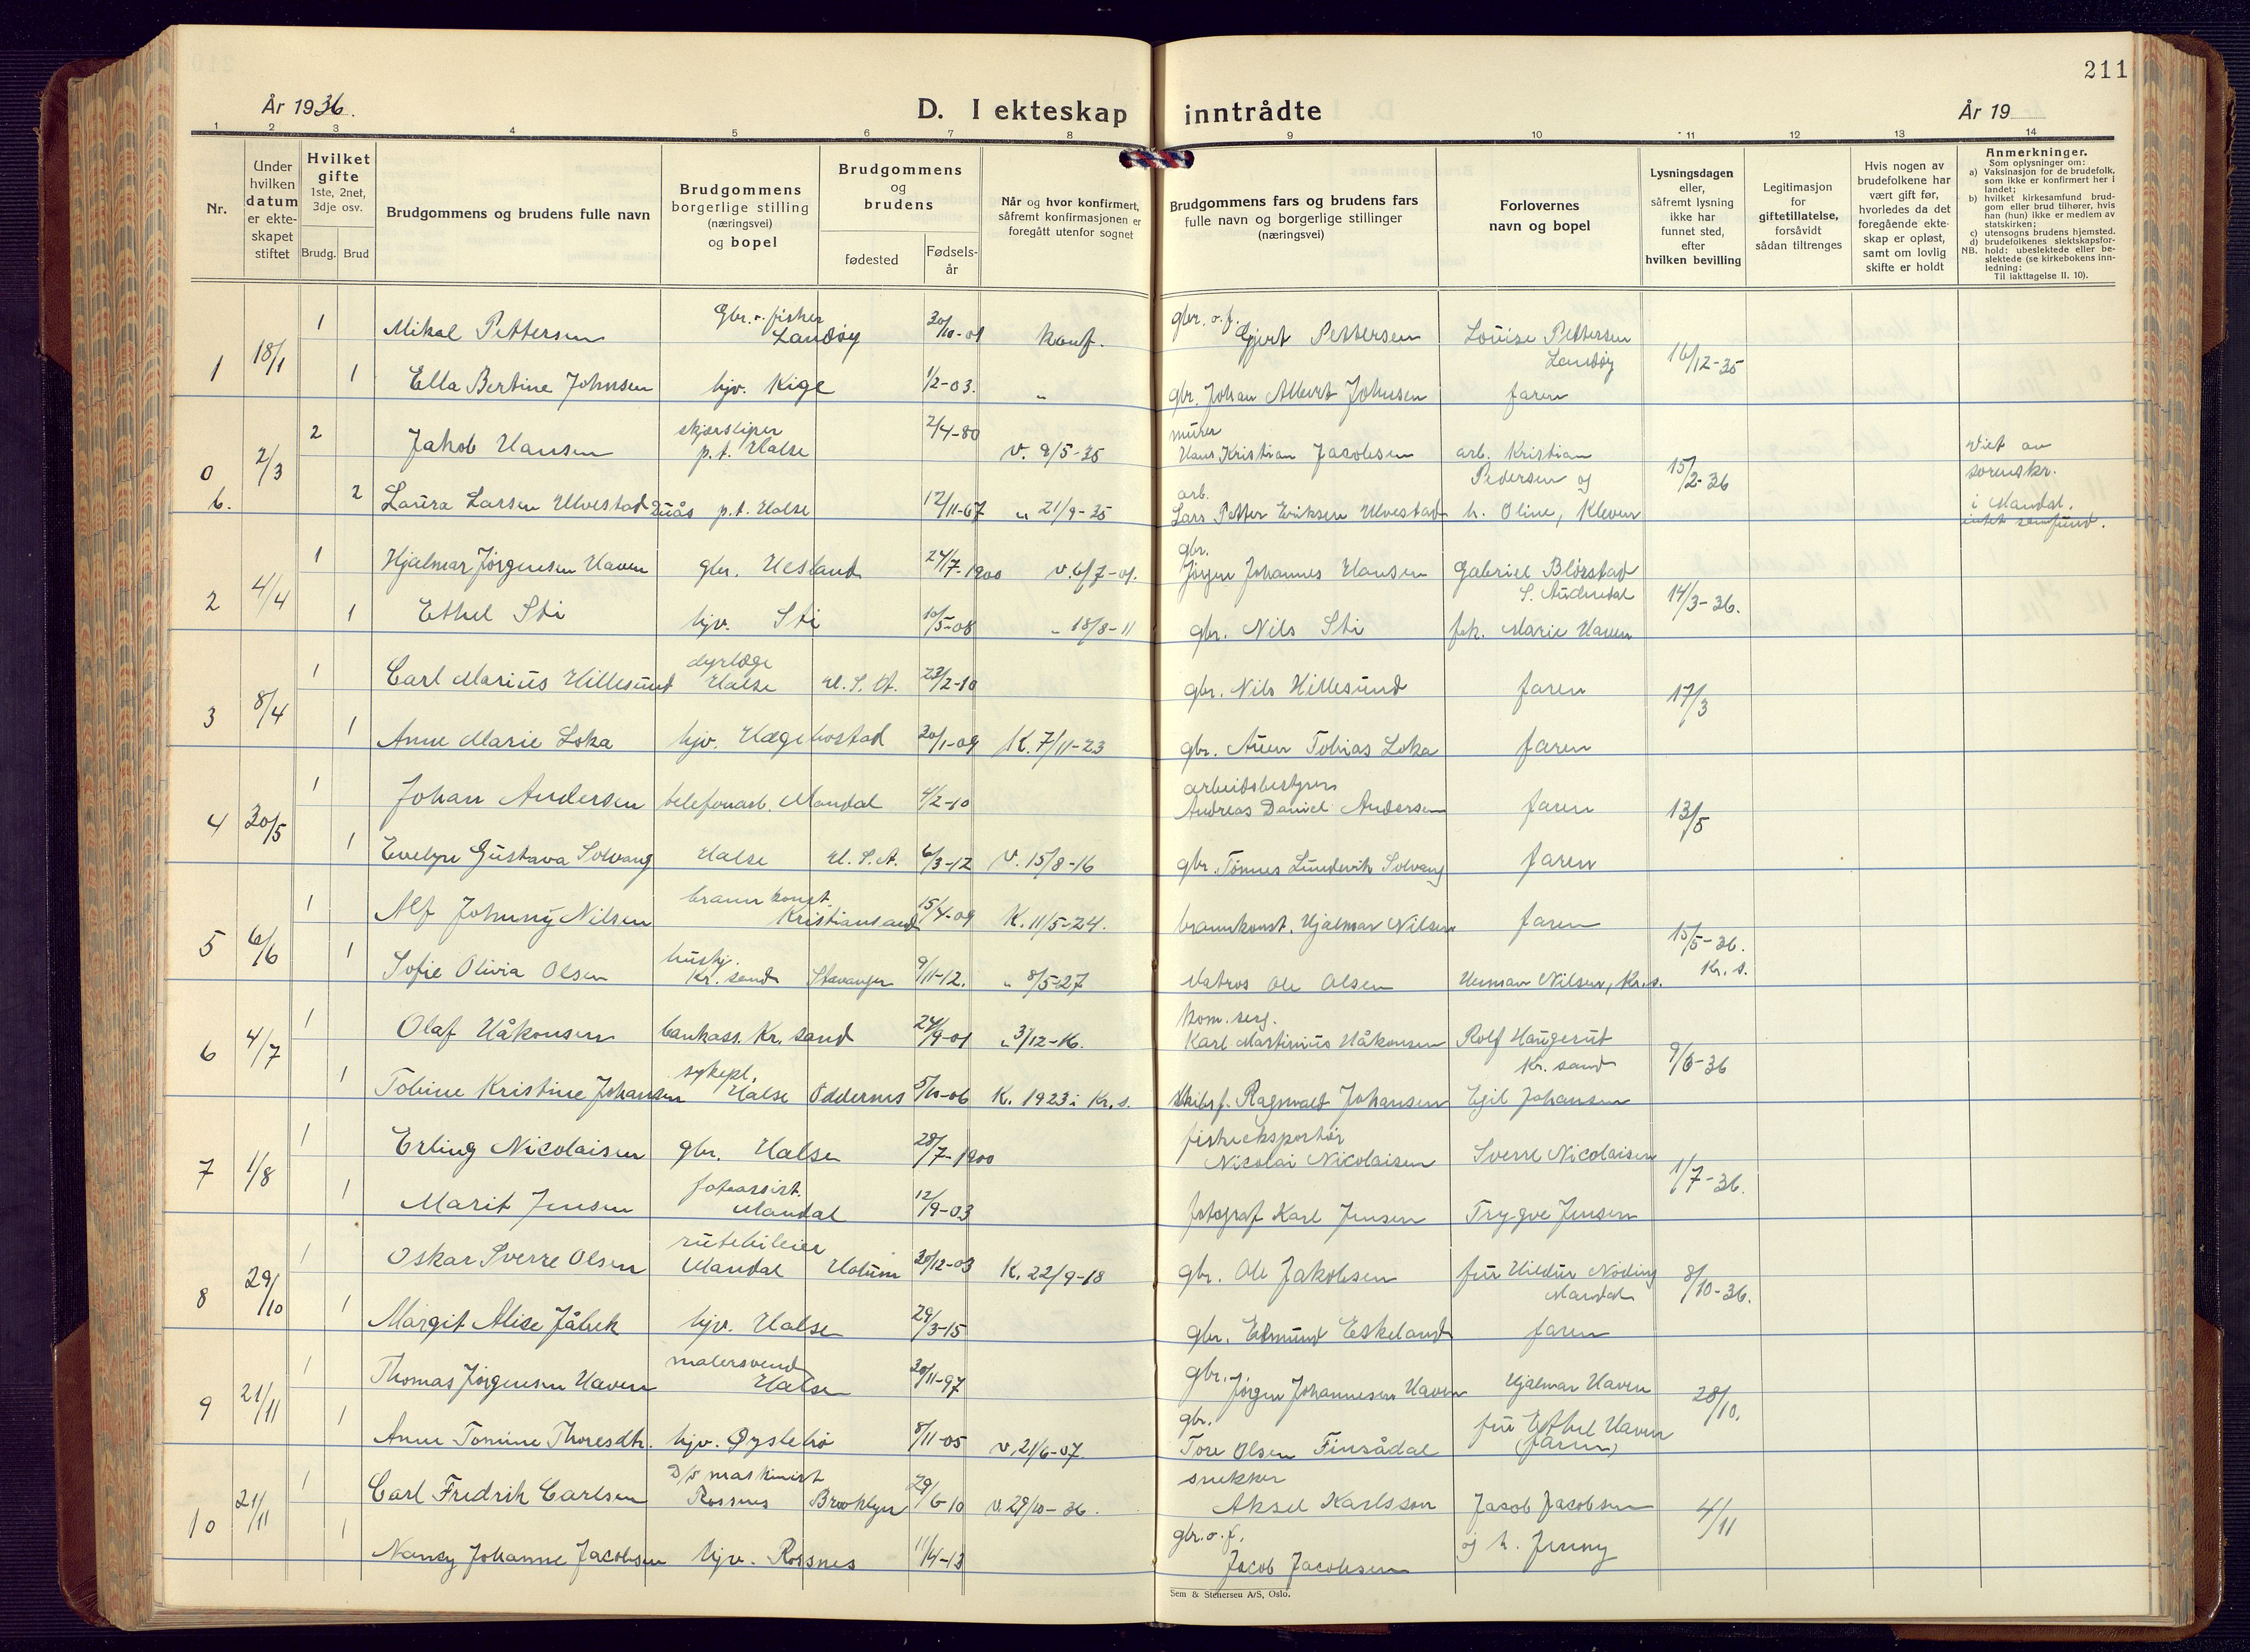 211
År 1936.
D. I ekteskap inntrådte
År 19
1 2 3 4 5 6 7 8 9 10 11 12 13 14
Nr.
Under
hvilken
datum
er ekte-
skapet
stiftet
Hvilket
gifte
1ste, 2net,
3dje osv.
Brudg. Brud
Brudgommens og brudens fulle navn
Brudgommens
borgerlige stilling
(næringsvei)
og bopel
Brudgommens
og
brudens
fødested
Fødsels-
år
Når og hvor konfirmert,
såfremt konfirmasjonen er
foregått utenfor sognet
Brudgommens fars og brudens fars
fulle navn og borgerlige stillinger
(næringsvei)
Forlovernes
navn og bopel
Lysningsdagen
eller,
såfremt lysning
ikke har
funnet sted,
efter
hvilken bevilling
Legitimasjon
for
giftetillatelse,
forsåvidt
sådan tiltrenges
Hvis nogen av
brudefolkene har
vært gift før,
hvorledes da det
foregående ekte-
skap er opløst,
samt om lovlig
skifte er holdt
Anmerkninger.
Som oplysninger om:
a) Vaksinasjon for de brudefolk,
som ikke er konfirmert her i
landet;
b) hvilket kirkesamfund brud-
gom eller brud tilhører, hvis
han (hun) ikke er medlem av
statskirken;
c) utensogns brudens hjemsted.
d) brudefolkenes slektskapsfor-
hold: ubeslektede eller be-
slektede (se kirkebokens inn-
ledning:
NB. Til iakttagelse II. 10).
1 18/1 1 Mikal Pettersen Gbr. o. fisker Landøy 30/10-01 Konf. gbr. o. f. Gjert Pettersen Louise Pettersen Landøy 16/12-35
1 Ella Bertine Johnsen hjv. Kige 1/2-03. " gbr. Johan Albert Johnsen faren
0 2/3 2 Jakob Hansen skjærsliper p.t. Halse 2/4-80 v. 9/5-35 murer Hans Kristian Jacobsen arb. Kristian Pedersen og 15/2-36 Viet av sorenskr.
6. 2 Laura Larsen Ulvestad p.t. Halse 12/11-67 " 21/9-35 arb. Lars Petter Eriksen Ulvestad h. Oline, Kleven i Mandal.
2 4/4 1 Hjalmar Jørgensen Haven gbr. Uesland 24/7-1900 v. 6/7-01. gbr. Jørgen Johannes Hansen Gabriel Blørstad S. Audnedal 14/3-36.
1 Ethel Sti hjv. Sti 10/5-08 " 18/8-11 gbr. Nils Sti frk. Marie Haven
3 8/4 1 Carl Marius Hillesund dyrlæge Halse U.S.A. 23/2-10 gbr. Nils Hillesund faren 17/3
1 Anne Marie Loka hjv. Hægebostad 20/1-09 K. 7/11-23 gbr. Auen Tobias Loka faren
4 30/5 1 Johan Andersen telefonarb. Mandal 4/2-10 arbeidsbestyrer Andreas Daniel Andersen faren 13/5
1 Evelyn Gustava Solvang Halse U.S.A. 6/3-12 v. 15/8-16 gbr. Tønnes Lundevik Solvang faren
5 6/6 1 Alf Johnny Nilsen brannkonst. Kristiansand 15/4-09 K. 11/5-24. brannkonst. Hjalmar Nilsen faren 15/5-36. Kr. s.
1 Sofie Olivia Olsen hushj. Kr. sand Stavanger 9/11-12. " 8/5-27 Matros Ole Olsen Herman Nilsen, Kr.s.
6 4/7 1 Olaf Håkonsen bankass. Kr. sand 24/9-01 " 3/12-16. kom. serg. Karl Martinius Håkonsen Rolf Haugerut Kr. sand 9/6-36
1 Tobine Kristine Johansen sykepl. Halse Oddernes 5/10-06 K. 1923 i Kr.s. skibsf. Ragnvald Johansen Egil Johansen
7 1/8 1 Erling Nicolaisen gbr. Halse 28/7-1900 fiskeeksportør Nicolai Nicolaisen Sverre Nicolaisen 1/7-36.
1 Marit Jensen fotoassist. Mandal 12/9-03 fotograf Karl Jensen Trygve Jensen
8 29/10 1 Oskar Sverre Olsen rutebileier Mandal Holum 30/12-03 K. 22/9-18 gbr. Ole Jakobsen fru Hildur Nøding Mandal 8/10-36.
1 Margit Alise Jåbek hjv. Halse 29/3-15 gbr. Edmund Eskeland faren
9 21/11 1 Thomas Jørgensen Haven malersvend Halse 30/11-97 gbr. Jørgen Johannesen Haven Hjalmar Haven 28/10.
1 Anne Tomine Thoresdtr. hjv. Øyslebø 8/11-05 v. 21/6-07 gbr. Tore Olsen Finsådal fru Ethel Haven (faren)
10 21/11 1 Carl Fredrik Carlsen D/S maskinist Rossnes Brooklyn 29/6-10 v. 29/10-36. snekker Aksel Karlsson Jacob Jacobsen 4/11
1 Nancy Johanne Jacobsen hjv. Rossnes 11/4-13 gbr. o. f. Jacob Jacobsen og h. Jenny
Sem & Stenersen A/S, Oslo.